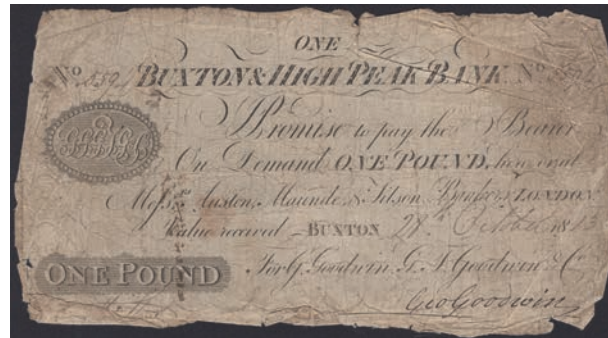 ONE
No. BUXTON & HIGH PEAK BANK No.
I Promise to pay the Bearer
On Demand ONE POUND, here or at
Messrs. Austen, Maunde & Tilson Bankers LONDON
Value received BUXTON 28th October 1813
ONE POUND For G. Goodwin, G. F. Goodwin & Co
Geo Goodwin